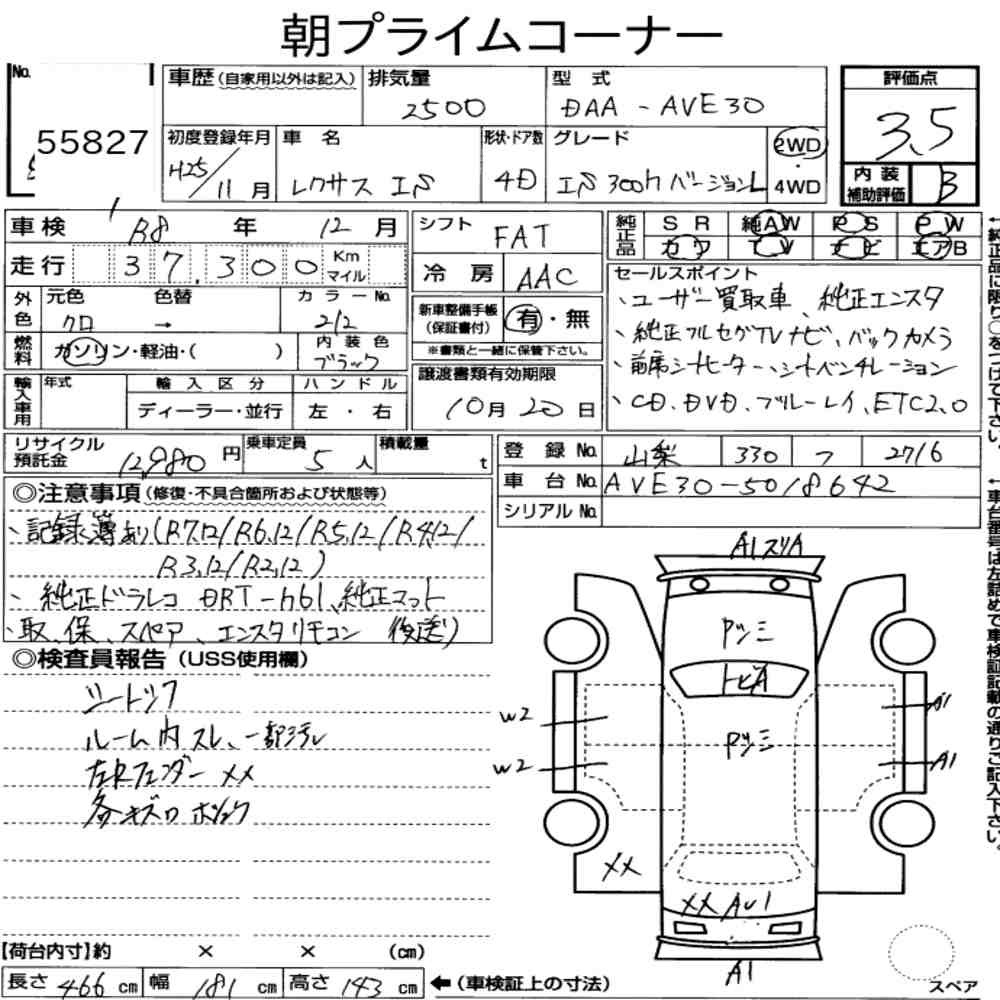 朝プライムコーナー
No. 55827
車歴(自家用以外は記入) 排気量 2500 型式 DAA-AVE30
評価点 3.5
初度登録年月 H25/11月 車名 レクサス IS 形状・ドア数 4D グレード IS300h バージョンL 2WD 4WD
内装補助評価 B
車検 R8年 12月
走行 37,300 Km マイル
シフト FAT
冷房 AAC
純正品 SR 純AW PS PW
カワ TV ナビ エアB
外色 元色 クロ 色替 → カラーNo. 212
燃料 ガソリン・軽油・( ) 内装色 ブラック
新車整備手帳(保証書付) 有・無
※書類と一緒に保管下さい。
譲渡書類有効期限 10月20日
輸入車用 年式 輸入区分 ディーラー・並行 ハンドル 左・右
セールスポイント
、ユーザー買取車、純正エンスタ
、純正フルセグTVナビ、バックカメラ
、前席シートヒーター・シートベンチレーション
、CD、DVD、ブルーレイ、ETC2.0
←純正品に限り○をつけて下さい。
リサイクル預託金 12,980円 乗車定員 5人 積載量 t
登録No. 山梨 330 フ 2716
車台No. AVE30-5018642
シリアルNo.
←車台番号は左詰めで車検証記載の通りご記入下さい。
◎注意事項(修復・不具合箇所および状態等)
、記録簿あり(R7,12/R6,12/R5,12/R4,12/
R3,12/R2,12)
、純正ドラレコ DRT-h61、純正マット
、取、保、スペア、エンスタリモコン 後送)
◎検査員報告(USS使用欄)
シートシワ
ルーム内スレ、一部汚レ
左Rフェンダー XX
各キズ
A1スリA
アッミ
トビA
アッミ
W2
W2
A1
A1
XX
XX AU1
A1
スペア
【荷台内寸】約 × × (cm)
長さ 466 cm 幅 181 cm 高さ 143 cm ←(車検証上の寸法)